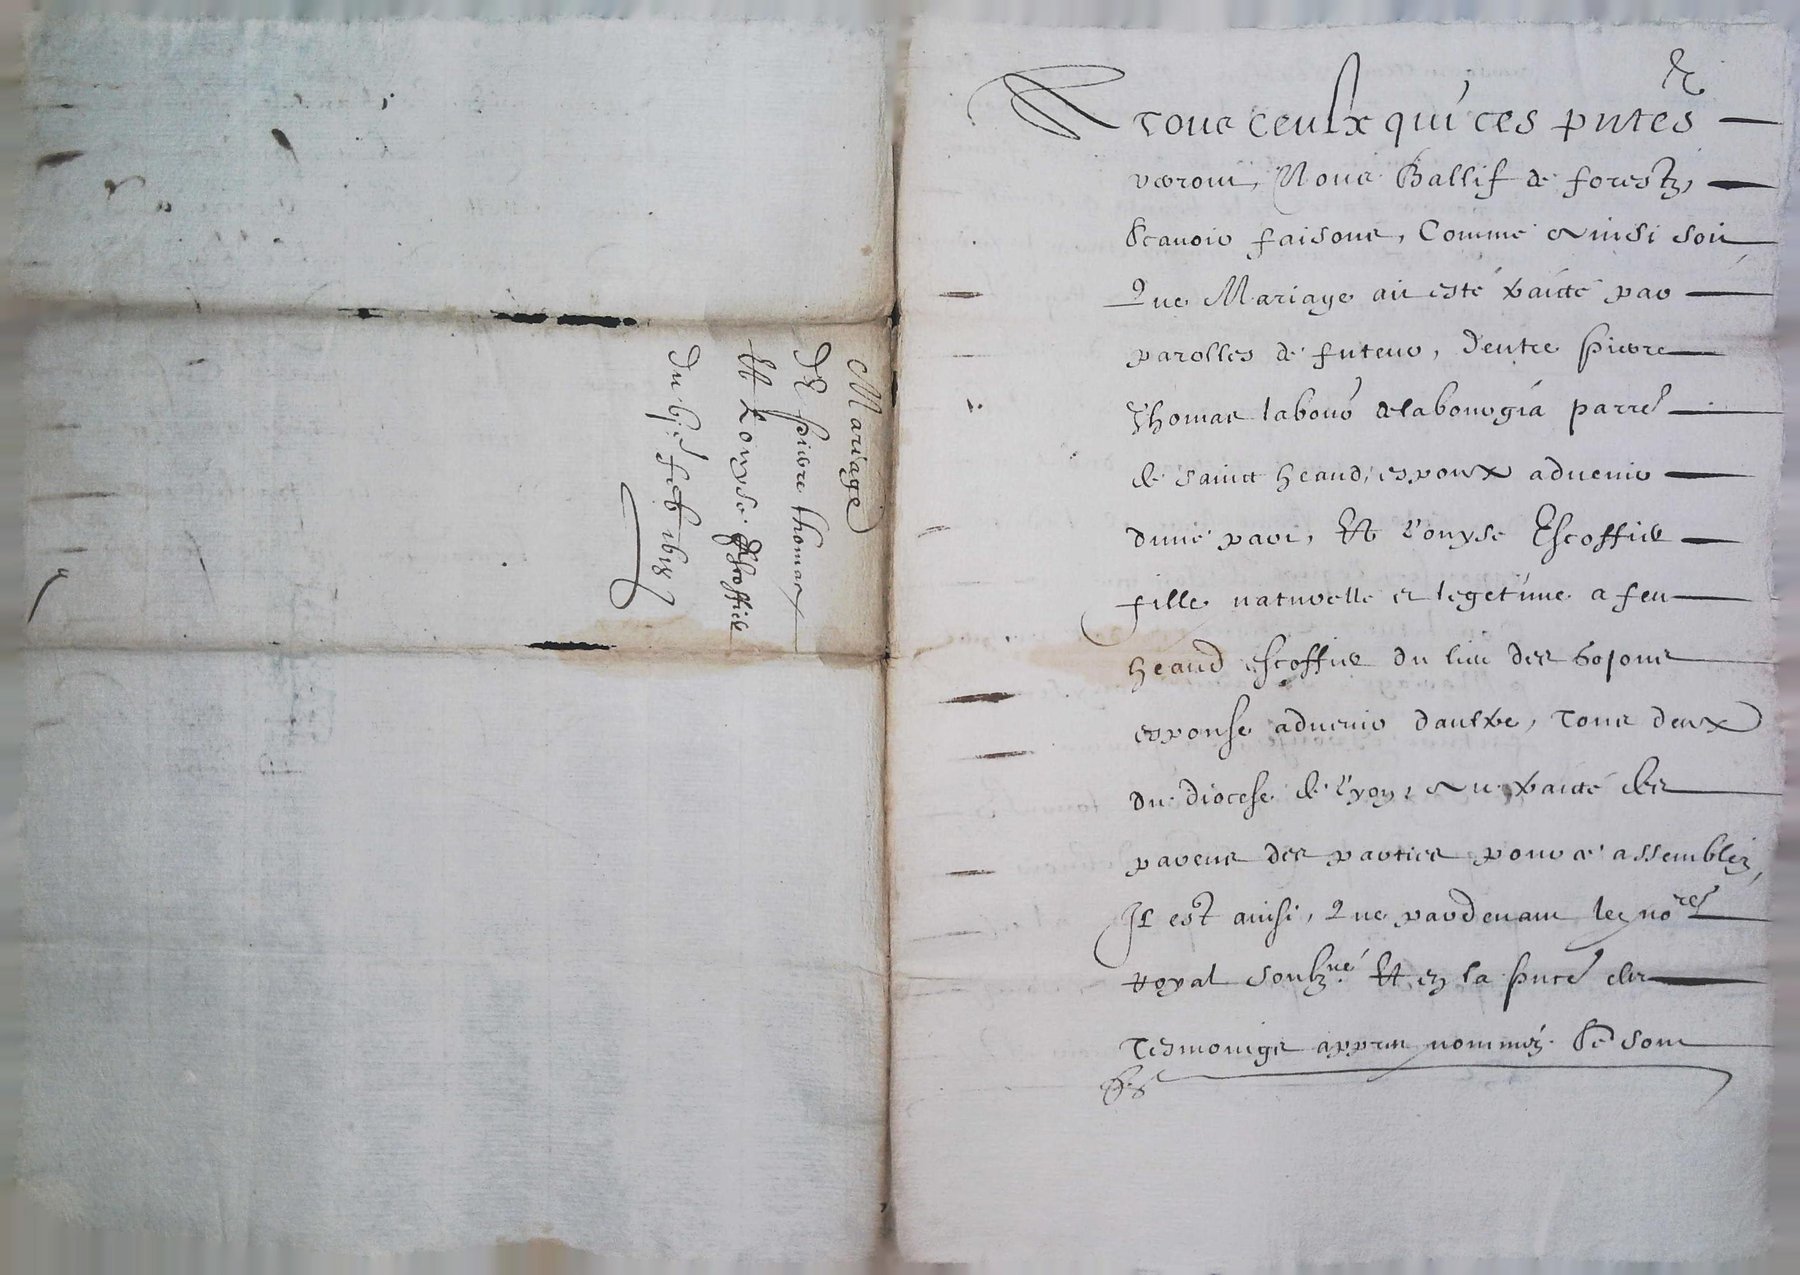 Mariage
de pierre thomas
Et Louyse Escoffier
du feb 1618
A tous ceulx qui ces pntes
verront, Nous Ballif de forestz,
Scavoir faisons, Comme ainsi soit
Que Mariage ait esté traicté par
parolles de futeur, d'entre pierre
Thomas labour parre
de sainct heand, espoux advenir
dune part, Et Louyse Escoffier
fille naturelle et legetime a feu
heand escoffier du lieu des
espouse advenir daultre, tous deux
du diocese de Lyon, traicté des
parens des parties pour ce assemblez,
Il est ainsi, Que pardevant le nore
royal soubzné Et en la pnce des
Tesmoings appres nommez Se sont